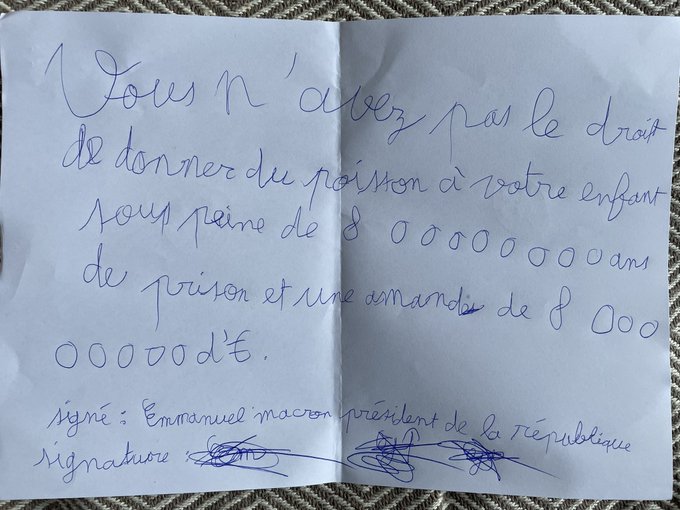 Vous n'avez pas le droit
de donner du poisson à votre enfant
sous peine de 8 00000000 ans
de prison et une amande de 8 000
00000 d'€.
signé : Emmanuel macron président de la république
signature :